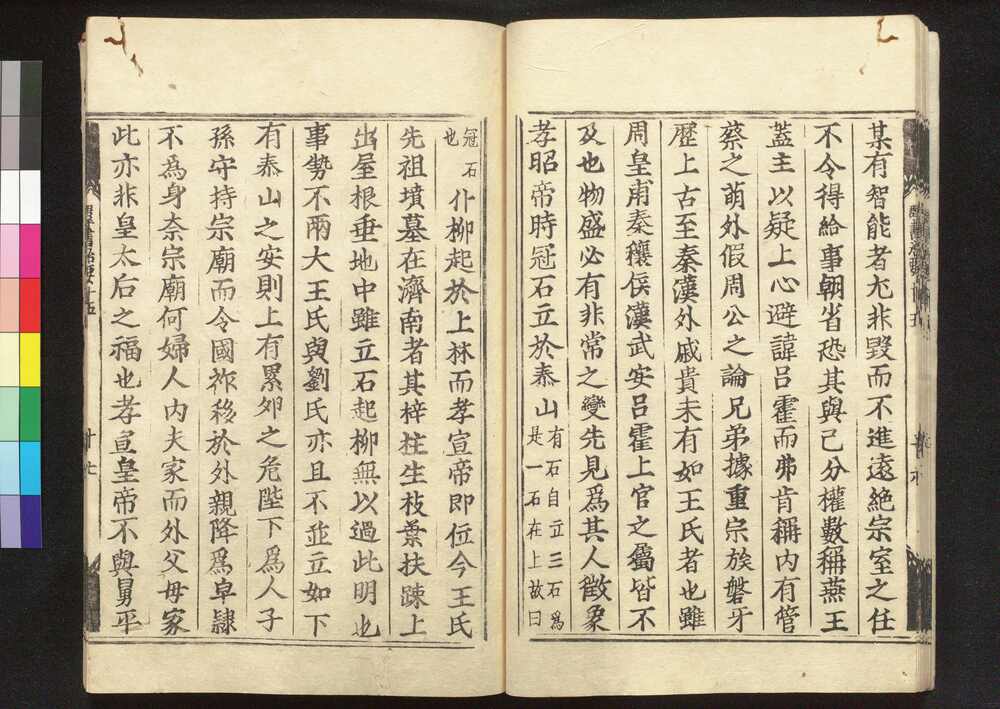 某有智能者尤非毀而不進遠絶宗室之任
不令得給事朝省恐其與己分權數稱燕王
蓋主以疑上心避諱呂霍而弗肯稱内有管
蔡之萌外假周公之論兄弟據重宗族磐牙
歷上古至秦漢外戚貴未有如王氏者也雖
周皇甫秦穰侯漢武安呂霍上官之屬皆不
及也物盛必有非常之變先見爲其人徵象
孝昭帝時冠石立於泰山有石自立三石爲是一石在上故曰
冠石也仆柳起於上林而孝宣帝即位今王氏
先祖墳墓在濟南者其梓柱生枝葉扶踈上
出屋根垂地中雖立石起柳無以過此明也
事勢不兩大王氏與劉氏亦且不並立如下
有泰山之安則上有累卵之危陛下爲人子
孫守持宗廟而令國祚移於外親降爲皁隷
不爲身奈宗廟何婦人内夫家而外父母家
此亦非皇太后之福也孝宣皇帝不與舅平